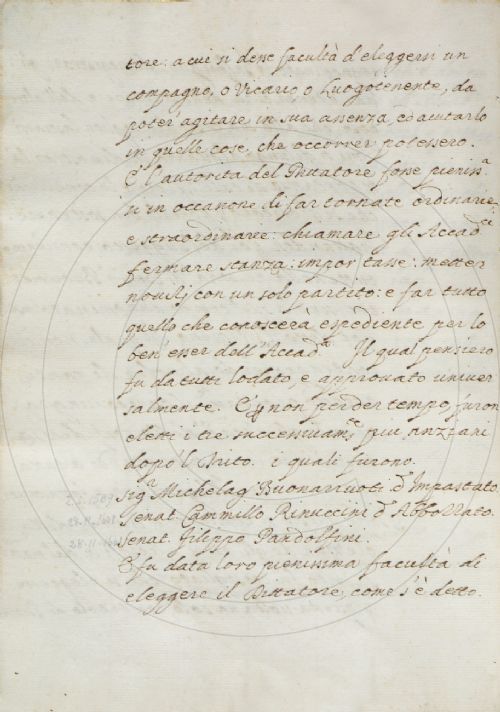 tore: a cui si desse facultà d'eleggersi un
compagno, o Vicario, o Luogotenente, da
poter' agitare in sua assenza, ed aiutarlo
in quelle cose, che occorrer potessero.
E l'autorità del Dittatore fosse pieniss.ᵃ
sì in occasione di far tornate ordinarie,
e straordinarie: chiamare gli Accad.ᶜⁱ
fermare stanza: impor tasse: metter
novilj con un solo partito: e far tutto
quello che conoscerà espediente per lo
ben' esser dell'Accad.ᵃ Il qual pensiero
fu da tutti lodato, e approvato univer
salmente. E non perder tempo, furon
eletti i tre successivam.ᵉ più anziani
dopo l'Trito. i quali furono.
Sig.ʳ Michelag.º Buonarruoti d.º Impastato.
Senat. Cammillo Rinuccini d.º Abbozzato.
Senat. Filippo Pandolfini.
E fu data loro pienissima facultà di
eleggere il Dittatore, come s'è detto.